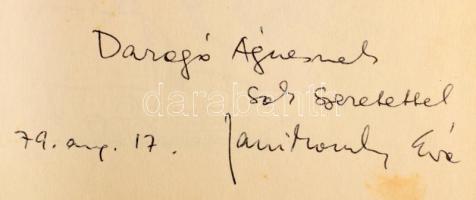 Daragó Ágnesnek
sok szeretettel
79. aug. 17. Janikovszky Éva
darabanth